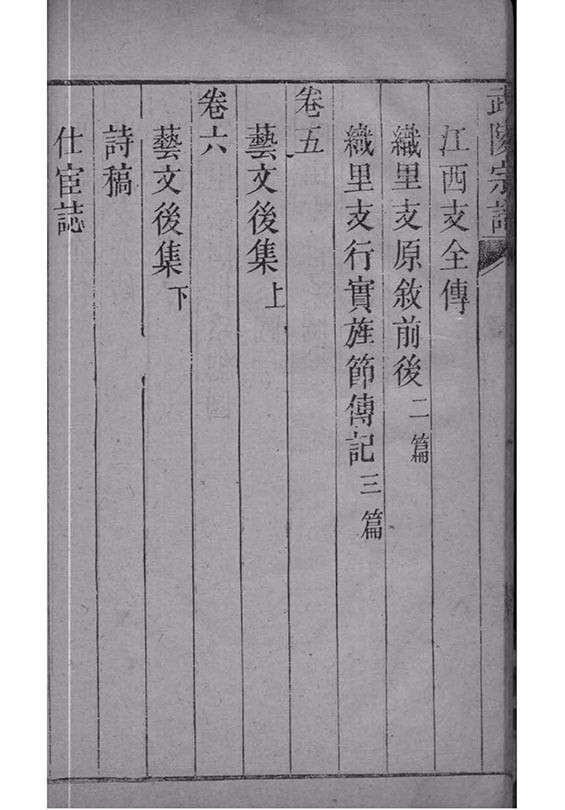 武陵宗譜
江西支全傳
織里支原敘前後二篇
織里支行實旌節傳記三篇
卷五
藝文後集上
卷六
藝文後集下
詩稿
仕宦誌